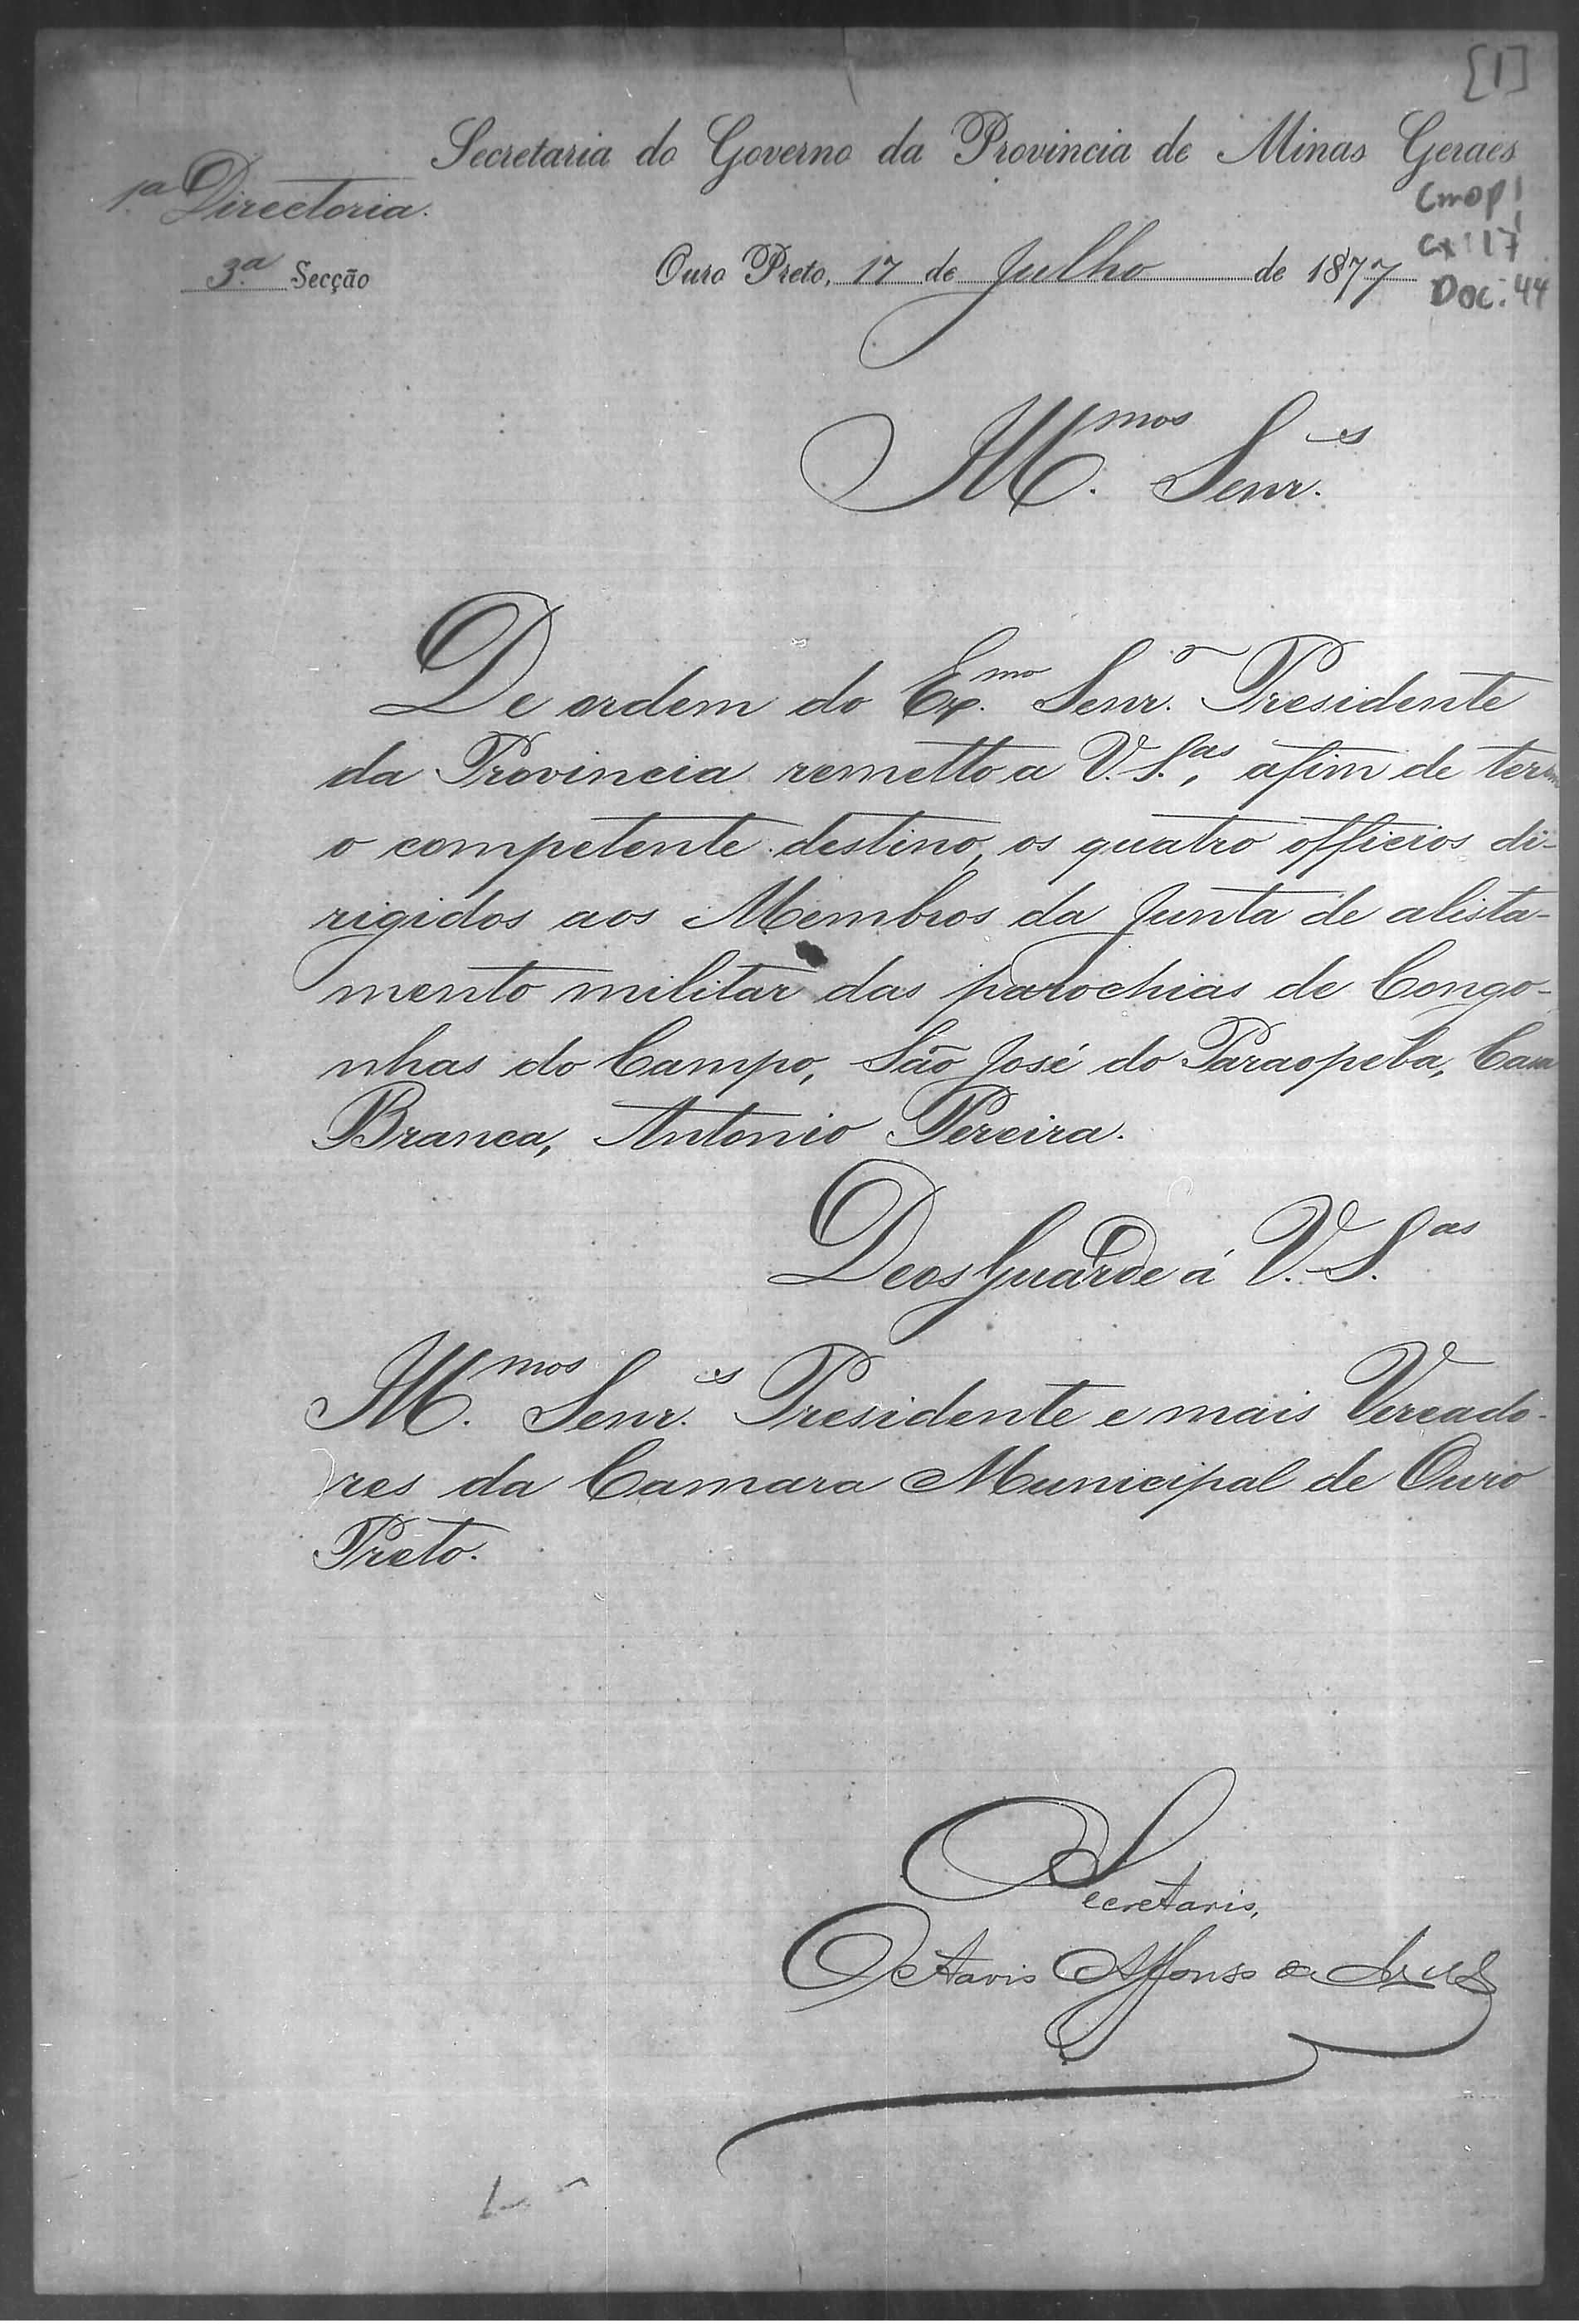 [1]
Secretaria do Governo da Provincia de Minas Geraes
1ª Directoria.
CMOP
Cx: 17
3.ª Secção
Ouro Preto, 17 de Julho de 1877
Doc: 44
Ill.mos Senr.es
De ordem do Ex.mo Senr. Presidente
da Provincia remetto a V. S.as, afim de terem
o competente destino, os quatro officios di-
rigidos aos Membros da Junta de alista-
mento militar das parochias de Congo-
nhas do Campo, São José do Paraopeba, Casa
Branca, Antonio Pereira.
Deos Guarde á V. S.as
Ill.mos Senr.es Presidente e mais Vereado-
res da Camara Municipal de Ouro
Preto.
O Secretario,
Octavio Affonso de